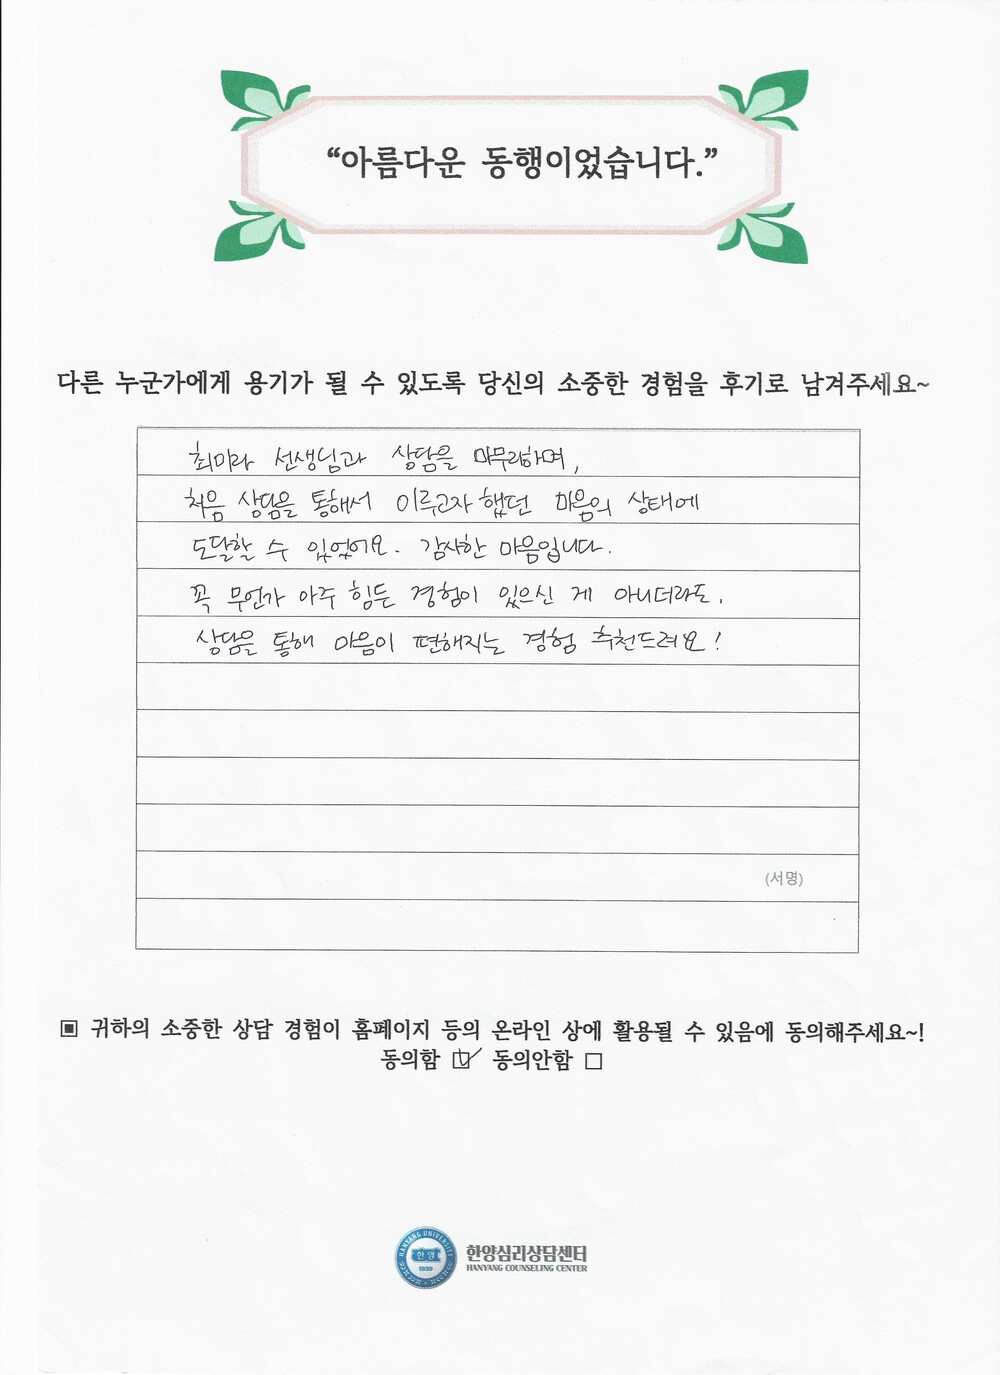 “아름다운 동행이었습니다.”
다른 누군가에게 용기가 될 수 있도록 당신의 소중한 경험을 후기로 남겨주세요~
최미라 선생님과 상담을 마무리하며,
처음 상담을 통해서 이루고자 했던 마음의 상태에
도달할 수 있었어요. 감사한 마음입니다.
꼭 무언가 아주 힘든 경험이 있으신 게 아니더라도,
상담을 통해 마음이 편해지는 경험 추천드려요!
(서명)
▣ 귀하의 소중한 상담 경험이 홈페이지 등의 온라인 상에 활용될 수 있음에 동의해주세요~!
동의함 ☑ 동의안함 □
HANYANG UNIVERSITY
한양
1939
한양심리상담센터
HANYANG COUNSELING CENTER